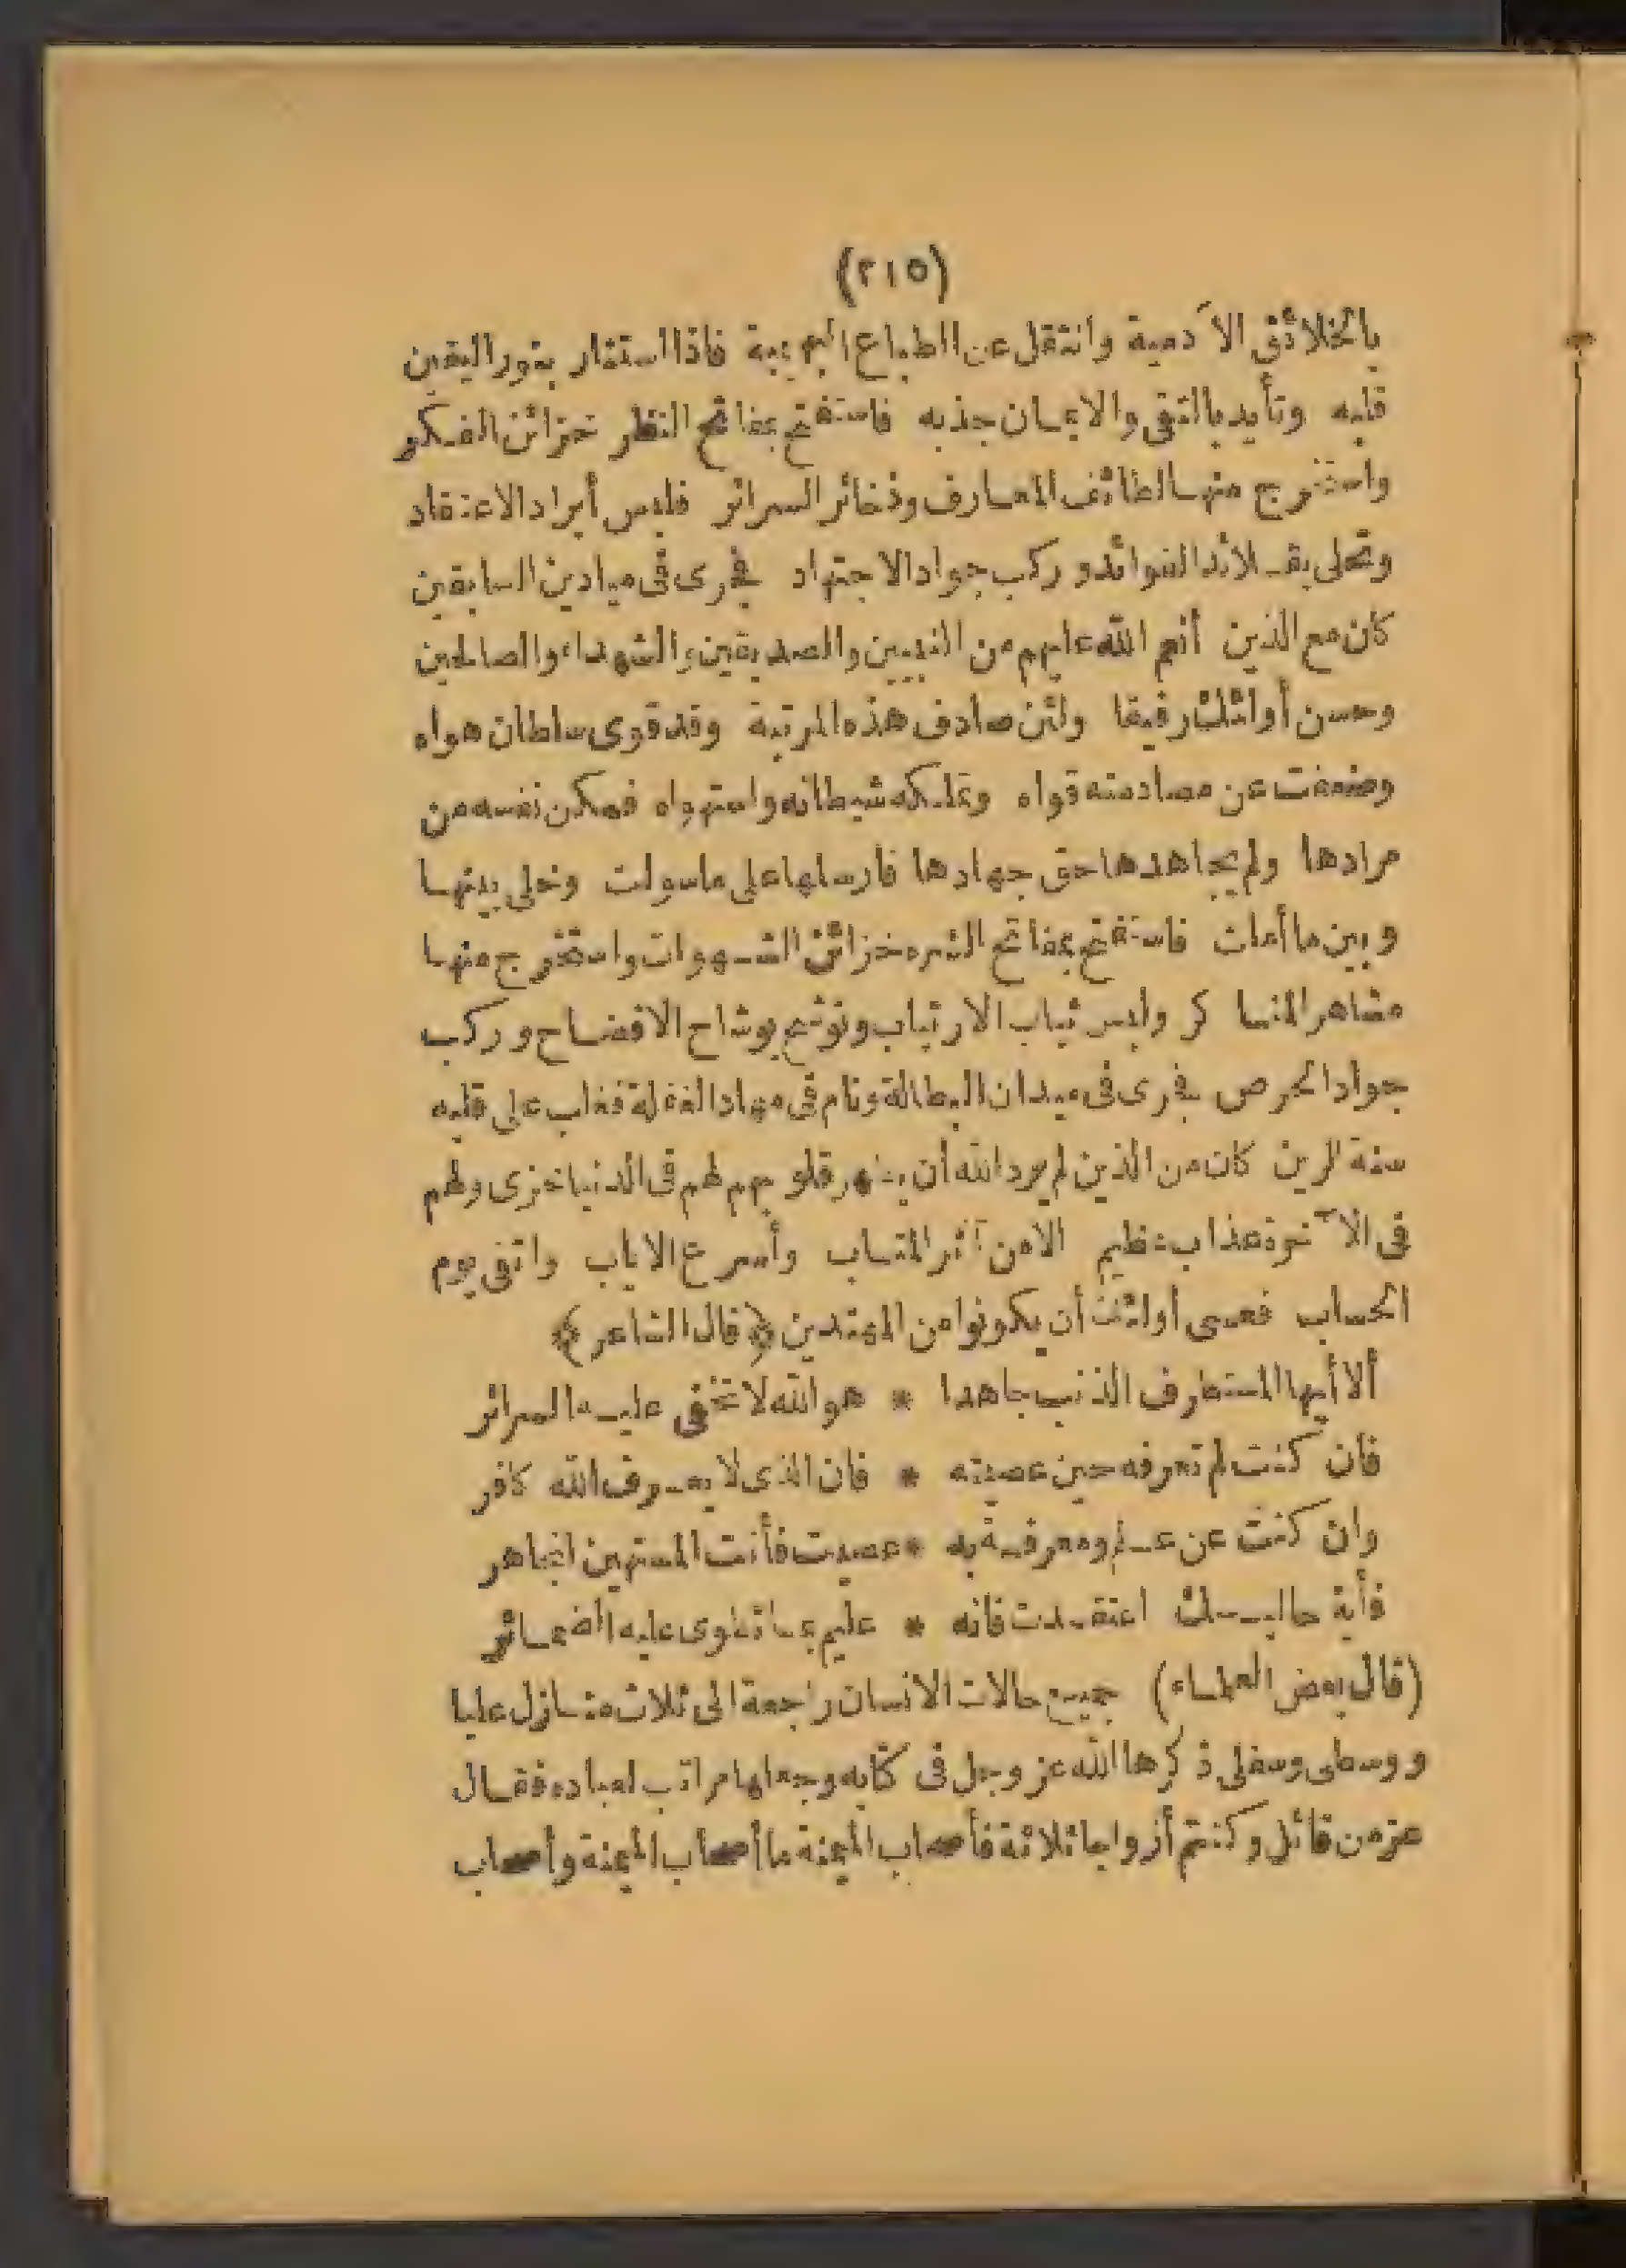 (٢١٥)
بالخلائق الآدمية وانتقل عن الطباع البهيمية فاذا استنار بنور اليقين
قلبه وتأيد بالتقى والايمان جذبه فاستفتح بمفاتح النظر خزائن الفكر
واستخرج منها لطائف المعارف وذخائر السرائر فلبس أبراد الاعتقاد
وتحلى بقلائد الفوائد وركب جواد الاجتهاد فجرى فى ميادين السابقين
كان مع الذين أنعم الله عليهم من النبيين والصديقين والشهداء والصالحين
وحسن أولئك رفيقا ولئن صادف هذه المرتبة وقد قوى سلطان هواه
وضعفت عن مصادمته قواه وتملكه شيطانه واستهواه فمكن نفسه من
مرادها ولم يجاهدها حق جهادها فأرسلها على ماسولت وخلى بينها
وبين ماأملت فاستفتح بمفاتح الشره خزائن الشهوات واستخرج منها
مشاهر المناكر ولبس ثياب الارتياب وتوشح بوشاح الافتضاح وركب
جواد الحرص فجرى فى ميدان البطالة ونام فى مهاد الغفلة فغلب على قلبه
سنة الرين كان من الذين لم يرد الله أن يطهر قلوبهم لهم فى الدنيا خزى ولهم
فى الآخرة عذاب عظيم الامن آثر المتاب وأسرع الاياب واتقى يوم
الحساب فعسى أولئك أن يكونوا من المهتدين ﴿قال الشاعر﴾
ألا أيها المستطرف الذنب جاهدا * هو الله لا تخفى عليه السرائر
فان كنت لم تعرفه حين عصيته * فان الذى لا يعرف الله كافر
وان كنت عن علم ومعرفة به * عصيت فأنت المستهين المجاهر
فأية حاليك اعتقدت فانه * عليم بما تطوى عليه الضمائر
(قال بعض العلماء) جميع حالات الانسان راجعة الى ثلاث منازل عليا
ووسطى وسفلى ذكرها الله عز وجل فى كتابه وجعلها مراتب لعباده فقال
عز من قائل وكنتم أزواجا ثلاثة فأصحاب الميمنة ما أصحاب الميمنة وأصحاب